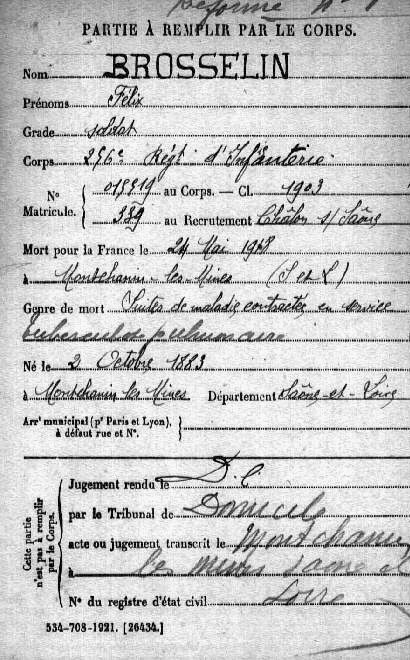 Réforme N° 1
PARTIE À REMPLIR PAR LE CORPS.
Nom BROSSELIN
Prénoms Félix
Grade soldat
Corps 256e Régt d'Infanterie
N° Matricule. { 015519 au Corps. — Cl. 1903
339 au Recrutement Châlon s/ Saône
Mort pour la France le 24 Mai 1918
à Montchanin-les-Mines (S et L)
Genre de mort Suites de maladie contractée en service
tuberculose pulmonaire
Né le 2 Octobre 1883
à Montchanin les Mines Département Saône-et-Loire
Arrt municipal (pr Paris et Lyon), à défaut rue et N°. }
Cette partie n'est pas à remplir par le Corps.
Jugement rendu le D.C.
par le Tribunal de Domicile
acte ou jugement transcrit le Montchanin
à les mines Saone et
N° du registre d'état civil Loire
534-708-1921. [26434.]